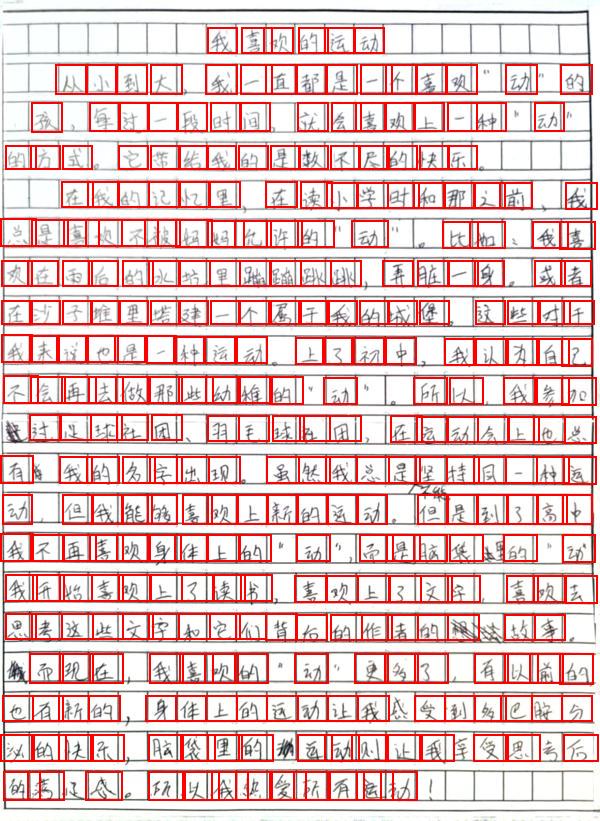 我喜欢的运动
从小到大，我一直都是一个喜欢“动”的
孩，每过一段时间，就会喜欢上一种“动”
的方式。它带给我的是数不尽的快乐。
在我的记忆里，在读小学时和那之前，我
总是喜欢不被妈妈允许的“动”。比如：我喜
欢在雨后的水坑里蹦蹦跳跳，弄脏一身。或者
在沙子堆里搭建一个属于我的城堡。这些对于
我来说也是一种运动。上了初中，我认为自己
不会再去做那些幼稚的“动”。所以，我参加
过足球社团、羽毛球社团，在运动会上也总
有我的名字出现。虽然我总是不能坚持同一种运
动，但我能够喜欢上新的运动。但是到了高中
我不再喜欢身体上的“动”，而是脑袋里的“动”
我开始喜欢上了读书，喜欢上了文字，喜欢去
思考这些文字和它们背后的作者的故事。
而现在，我喜欢的“动”更多了，有以前的
也有新的，身体上的运动让我感受到多巴胺分
泌的快乐，脑袋里的运动则让我享受思考后
的满足感。所以我热爱所有运动！